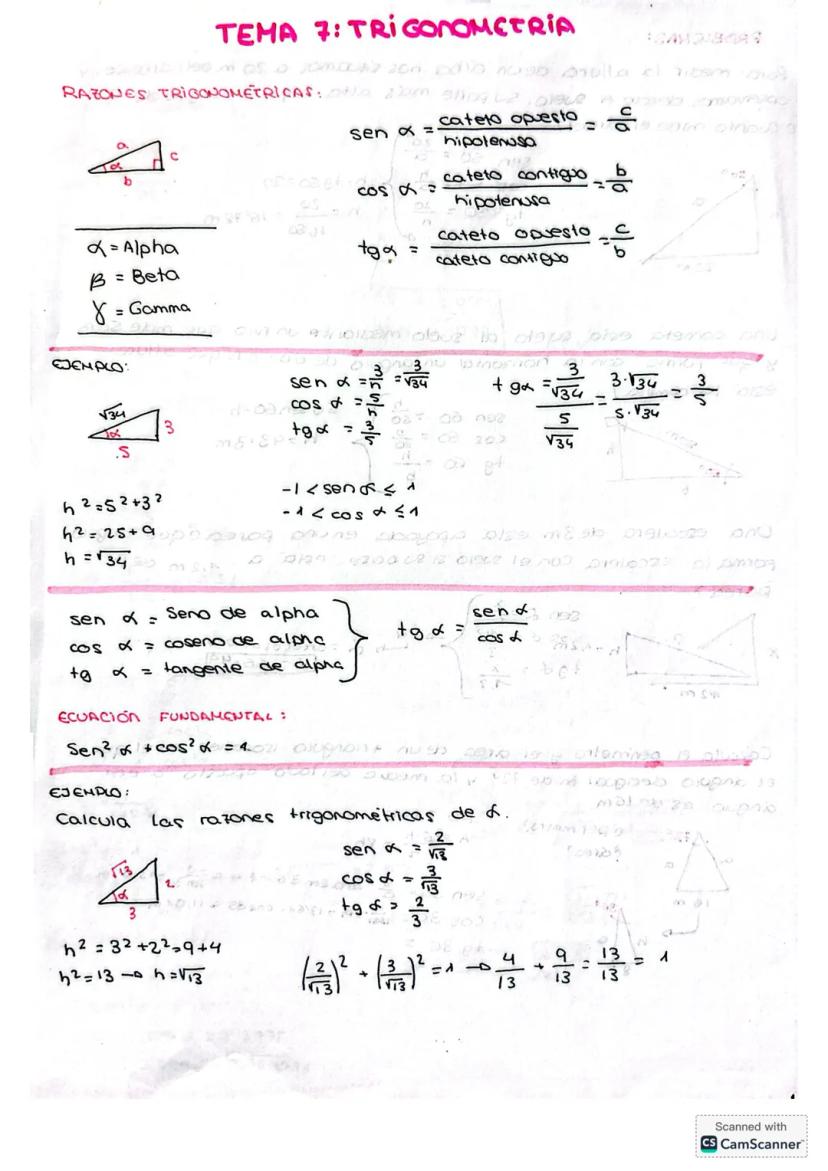 TEMA 7: TRIGONOMETRIA
RAZONES TRIGONOMÉTRICAS:
a
c
α
b
sen α = cateto opuesto / hipotenusa = c/a
cos α = cateto contiguo / hipotenusa = b/a
tg α = cateto opuesto / cateto contiguo = c/b
α = Alpha
β = Beta
γ = Gamma
EJEMPLO:
√34
3
α
5
sen α = 3/h = 3/√34
cos α = 5/h
tg α = 3/5
tg α = (3/√34) / (5/√34) = 3·√34 / 5·√34 = 3/5
h² = 5² + 3²
h² = 25 + 9
h = √34
-1 < sen α ≤ 1
-1 < cos α ≤ 1
sen α = Seno de alpha
cos α = coseno de alpha
tg α = tangente de alpha
tg α = sen α / cos α
ECUACIÓN FUNDAMENTAL:
Sen² α + cos² α = 1
EJEMPLO:
Calcula las razones trigonométricas de α.
√13
2
α
3
sen α = 2/√13
cos α = 3/√13
tg α = 2/3
h² = 3² + 2² = 9 + 4
h² = 13 → h = √13
(2/√13)² + (3/√13)² = 1 → 4/13 + 9/13 = 13/13 = 1
Scanned with
CS CamScanner